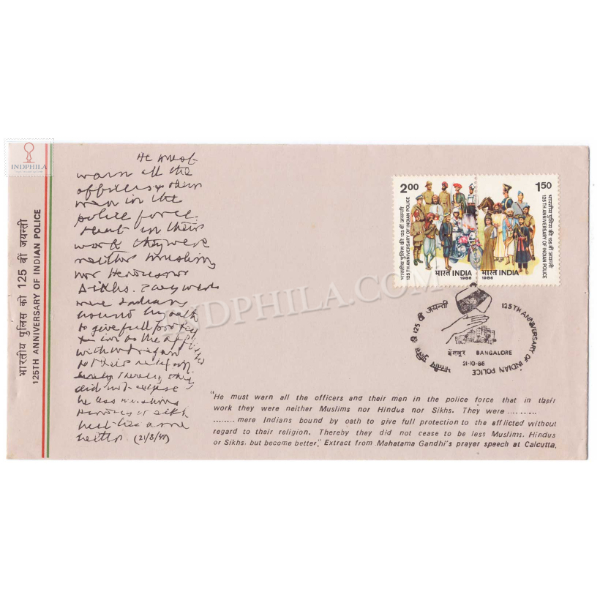 INDPHILA
भारतीय पुलिस की 125 वीं जयन्ती
125TH ANNIVERSARY OF INDIAN POLICE
He must
warn all the
officers & their
men in the
police force
that in their
work they were
neither Muslims
nor Hindus nor
Sikhs. They were
mere Indians
bound by oath
to give full protec
without regard
to their religion.
thereby they
did not cease
be less Muslims
Hindus or Sikhs
but become
better. (21/8/47)
2.00
भारतीय पुलिस की 125 वीं जयन्ती
125TH ANNIVERSARY OF INDIAN POLICE
भारत INDIA
1986
1.50
भारतीय पुलिस की 125 वीं जयन्ती
125TH ANNIVERSARY OF INDIAN POLICE
भारत INDIA
1986
भारतीय पुलिस की 125 वीं जयन्ती
125TH ANNIVERSARY OF INDIAN POLICE
बेंगलूर BANGALORE
21-10-86
INDPHILA.COM
"He must warn all the officers and their men in the police force that in their
work they were neither Muslims nor Hindus nor Sikhs. They were ..........
........ mere Indians bound by oath to give full protection to the afflicted without
regard to their religion. Thereby they did not cease to be less Muslims, Hindus
or Sikhs, but become better". Extract from Mahatama Gandhi's prayer speech at Calcutta.